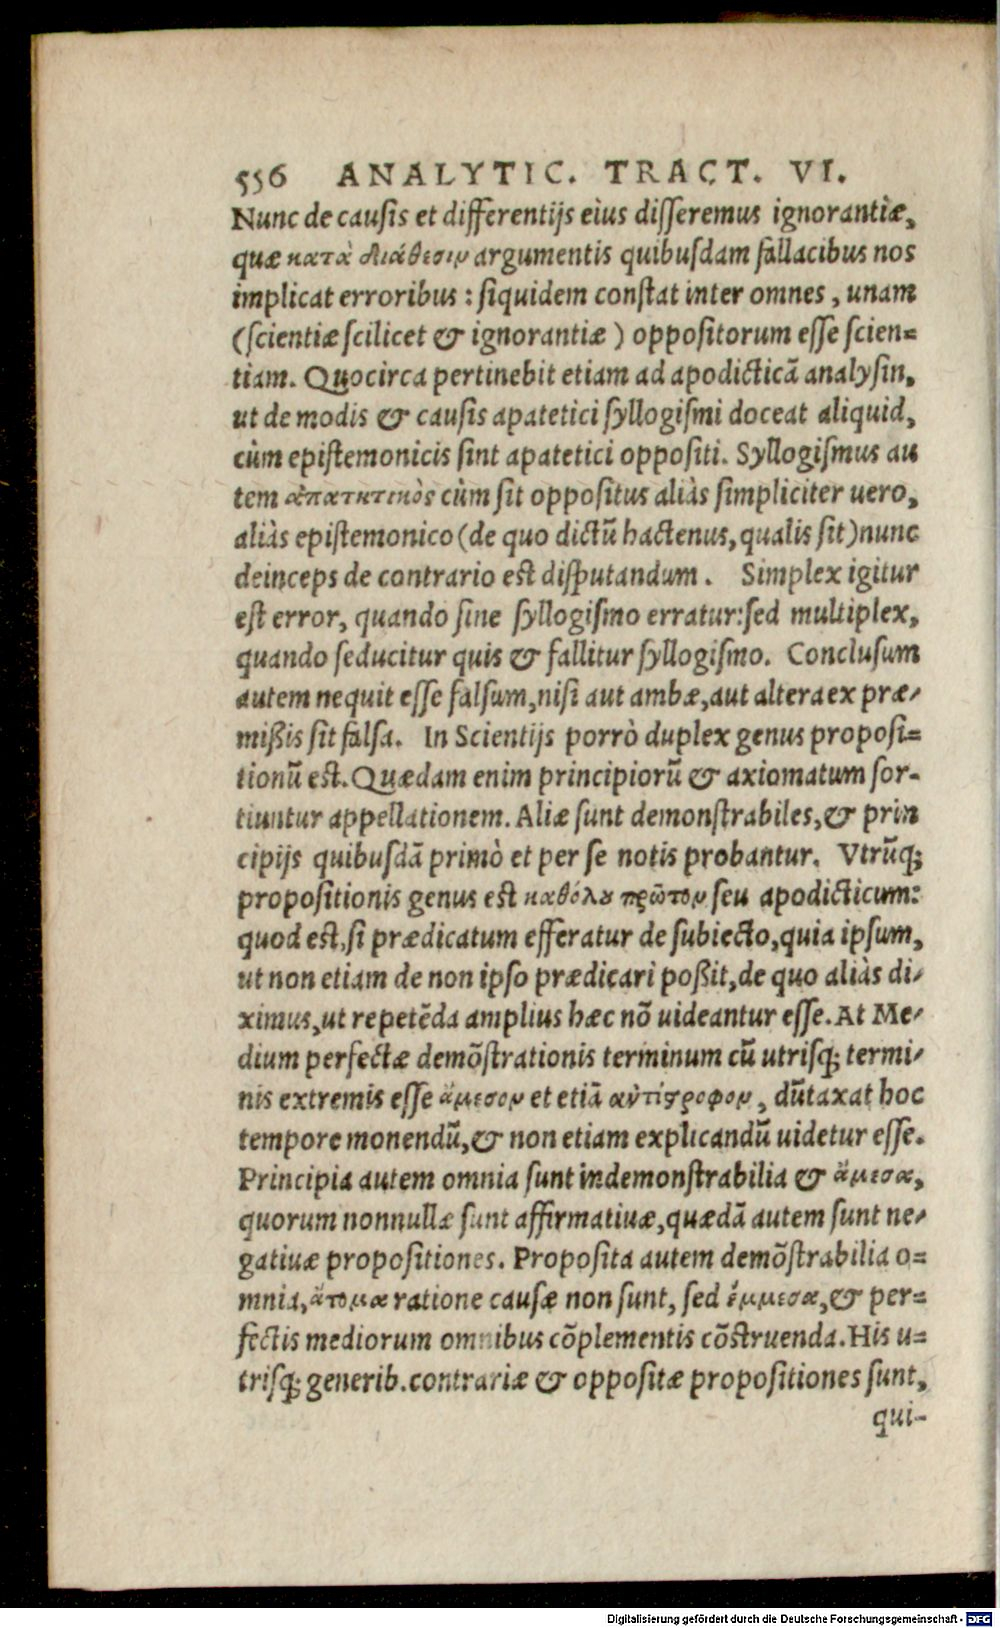 556 ANALYTIC. TRACT. VI.
Nunc de causis et differentijs eius disseremus ignorantiæ,
quæ κατὰ διάθεσιν argumentis quibusdam fallacibus nos
implicat erroribus : siquidem constat inter omnes, unam
(scientiæ scilicet & ignorantiæ) oppositorum esse scien=
tiam. Quocirca pertinebit etiam ad apodicticā analysin,
ut de modis & causis apatetici syllogismi doceat aliquid,
cùm epistemonicis sint apatetici oppositi. Syllogismus au
tem ἀπατητικὸς cùm sit oppositus aliàs simpliciter uero,
aliàs epistemonico (de quo dictū hactenus, qualis sit) nunc
deinceps de contrario est disputandum. Simplex igitur
est error, quando sine syllogismo erratur: sed multiplex,
quando seducitur quis & fallitur syllogismo. Conclusum
autem nequit esse falsum, nisi aut ambæ, aut altera ex præ-
mißis sit falsa. In Scientijs porrò duplex genus proposi=
tionū est. Quædam enim principiorū & axiomatum sor-
tiuntur appellationem. Aliæ sunt demonstrabiles, & prin
cipijs quibusdā primò et per se notis probantur. Vtrūq;
propositionis genus est καθόλȣ πρῶτον seu apodicticum:
quod est, si prædicatum efferatur de subiecto, quia ipsum,
ut non etiam de non ipso prædicari poßit, de quo aliàs di-
ximus, ut repetēda amplius hæc nō uideantur esse. At Me-
dium perfectæ demōstrationis terminum cū utrisq; termi-
nis extremis esse ἄμεσον et etiā ἀντίςροφον, dūtaxat hoc
tempore monendū, & non etiam explicandū uidetur esse.
Principia autem omnia sunt indemonstrabilia & ἄμεσα,
quorum nonnullæ sunt affirmatiuæ, quædā autem sunt ne-
gatiuæ propositiones. Proposita autem demōstrabilia o=
mnia, ἄτομα ratione causæ non sunt, sed ἔμμεσα, & per=
fectis mediorum omnibus cōplementis cōstruenda. His u=
trisq; generib. contrariæ & oppositæ propositiones sunt,
qui-
Digitalisierung gefördert durch die Deutsche Forschungsgemeinschaft - DFG